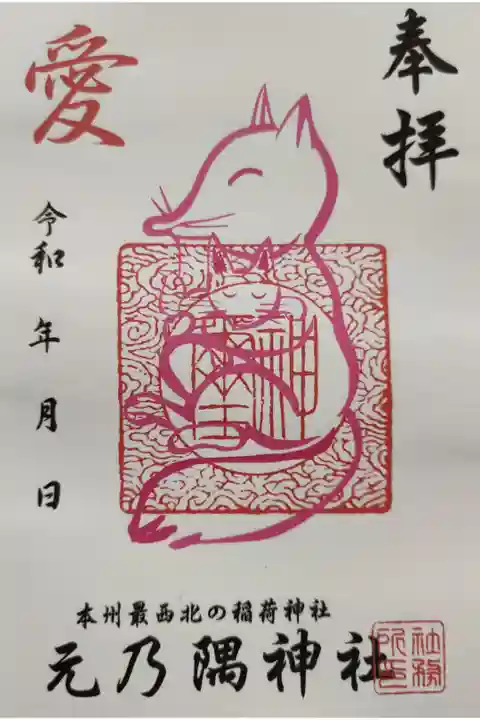 奉拝
愛
令和　年　月　日
本州最西北の稲荷神社
元乃隅神社
社務所印